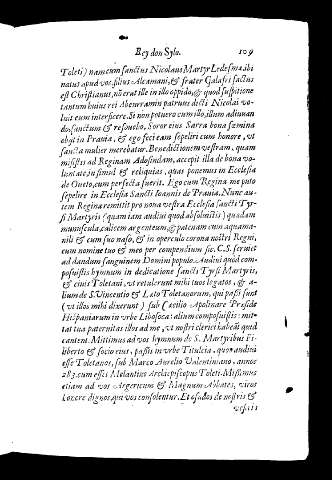 Rey don Sylo. 109
Toleti) nam cum sanctus Nicolaus Martyr Ledesmæ ibi
natus apud vos, filius Alcamani, & frater Galafri factus
est Christianus, nō erat ille in illo oppido, & quod suspitione
tantum huius rei Abenramin patruus dicti Nicolai vo-
luis eum interficere. Si non potuero cum illo, illum adiuuan
do sanctum & resouebo, Soror eius Sarra bona fæmina
obijt in Prauia, & ego feci eam sepeliri cum honore, vt
sancta mulier merebatur. Benedictionem vestram, quam
misistis ad Reginam Adosindam, accepit illa de bona vo-
luntate, insimul & reliquias, quas ponemus in Ecclesia
de Oueto, cum perfecta fuerit. Ego cum Regina me puto
sepelire in Ecclesia Sancti Ioannis de Prauia. Nunc au-
tem Regina remittit pro noua vestra Ecclesia sancti Tyr-
si Martyris (quam iam audiui quod absoluistis) quædam
munuscula, calicem argenteum, & patenam cum aquama-
nili & cum suo naso, & in operculo corona nostri Regni,
cum nomine tuo & meo per compendium sic. C.S. seruiet
ad dandam sanguinem Domini populo. Audiui quod com-
posuistis hymnum in dedicatione sancti Tyrsi Martyris,
& ciuis Toletani, vt retulerunt mihi tuos legatos, & a-
lium de S. Vincentio & Læto Toletanorum, qui passi sunt
(vt illos mihi dixerunt) sub Cæcilio Apolinare Præside
Hispaniarum in vrbe Libosoca: alium composuistis: mit-
tat tua paternitas illos ad me, vt nostri clerici habeāt quid
cantent. Mittimus ad vos hymnum de S. Martyribus Fi-
liberto & socio eius, passis in vrbe Titulcia, quos audiui
esse Toletanos, sub Marco Aurelio Valentiniano, annos
283. cum esset Melantius Archiepiscopus Toleti. Misimus
etiam ad vos Argericum & Magnum Abbates, viros
honore dignos, qui vos consolentur. Et osados de nostris &
vestis